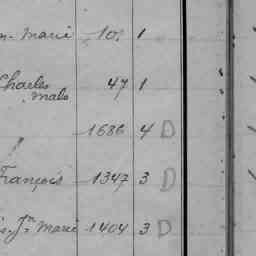 Marie 10. 1
Charles
Malo 47 1
1686 4 D
François 1347 3 D
Jn Marie 1404 3 D